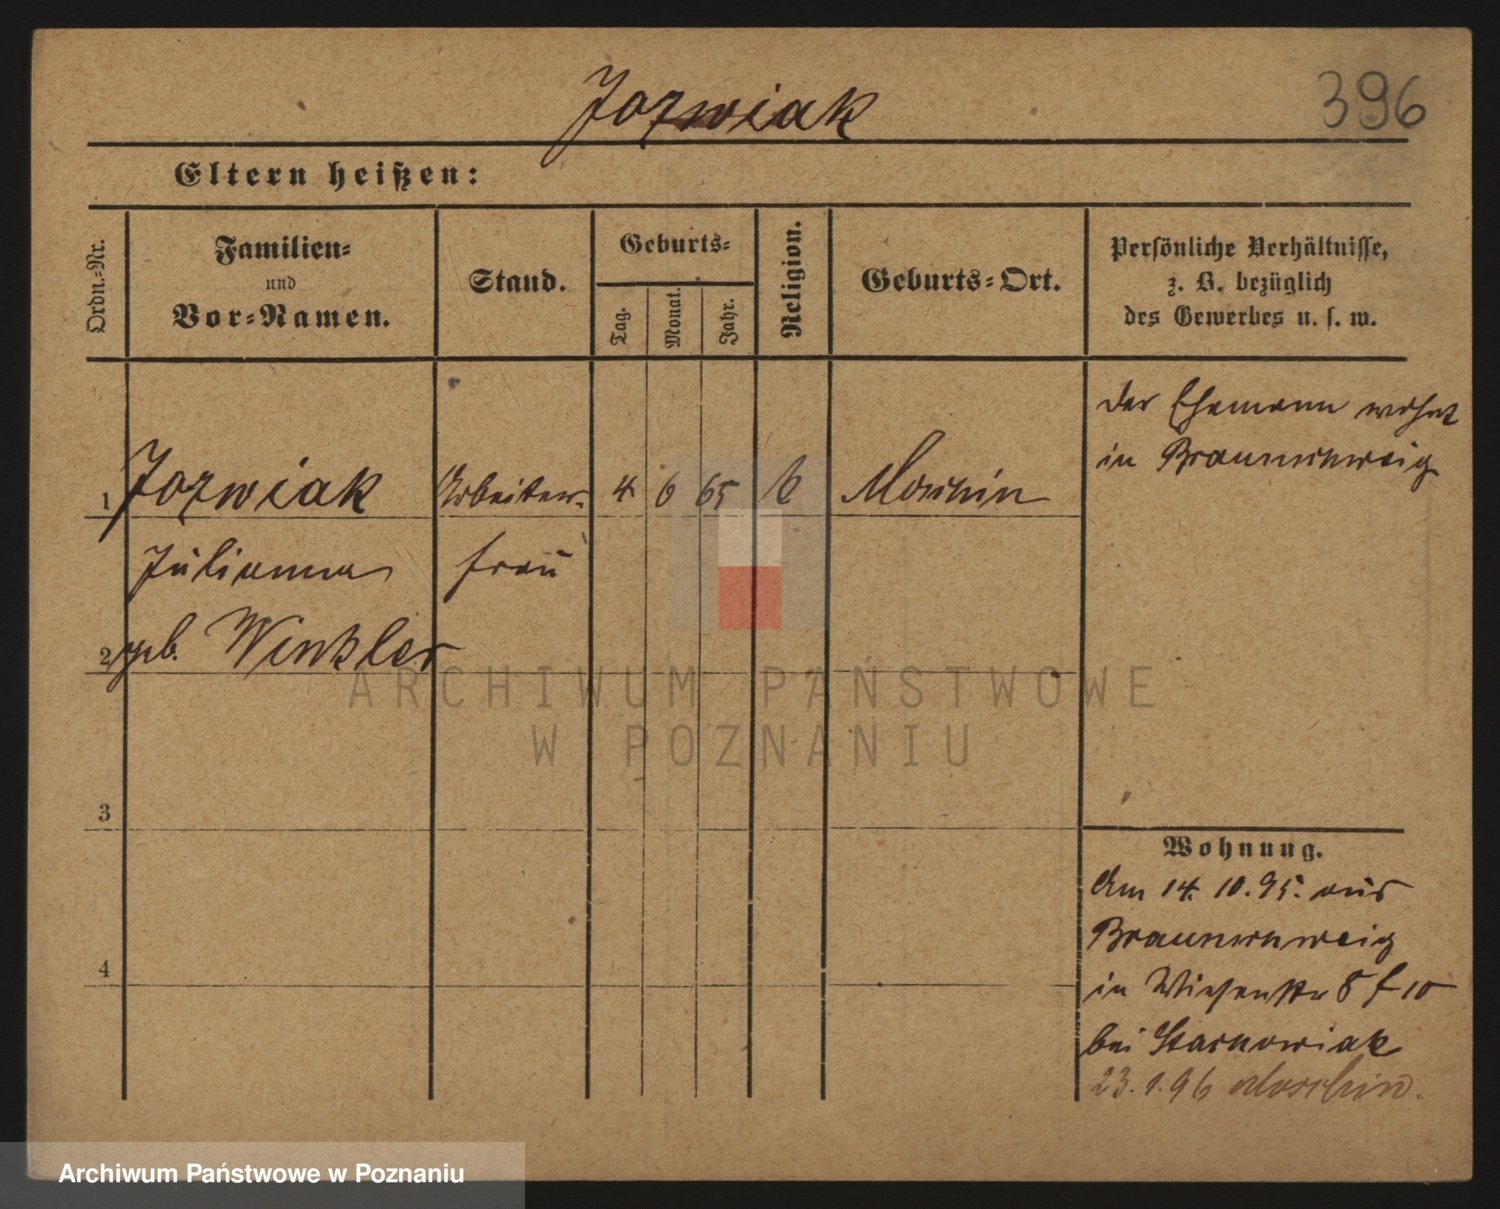 Jozwiak
396
Eltern heißen:
Ordn.-Nr.
Familien-
und
Vor-Namen.
Stand.
Geburts-
Tag.
Monat.
Jahr.
Religion.
Geburts-Ort.
Persönliche Verhältnisse,
z. B. bezüglich
des Gewerbes u. s. w.
1 Jozwiak Arbeiter- 4 6 65 Moschin
Julianna frau
2 geb. Winkler
3
4
der Ehemann wohnt
in Braunschweig
Wohnung.
Am 14. 10. 95. aus
Braunschweig
in Wiesenstr 8 f 10
bei Starkowiak
23.1.96 Moschin.
ARCHIWUM PAŃSTWOWE
W POZNANIU
Archiwum Państwowe w Poznaniu